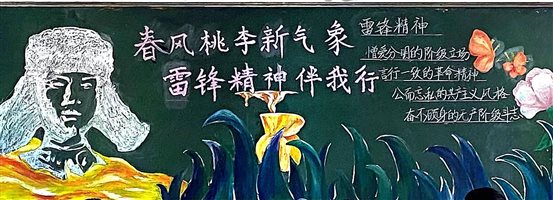 春风桃李新气象
雷锋精神伴我行
雷锋精神
憎爱分明的阶级立场
言行一致的革命精神
公而忘私的共产主义风格
奋不顾身的无产阶级斗志